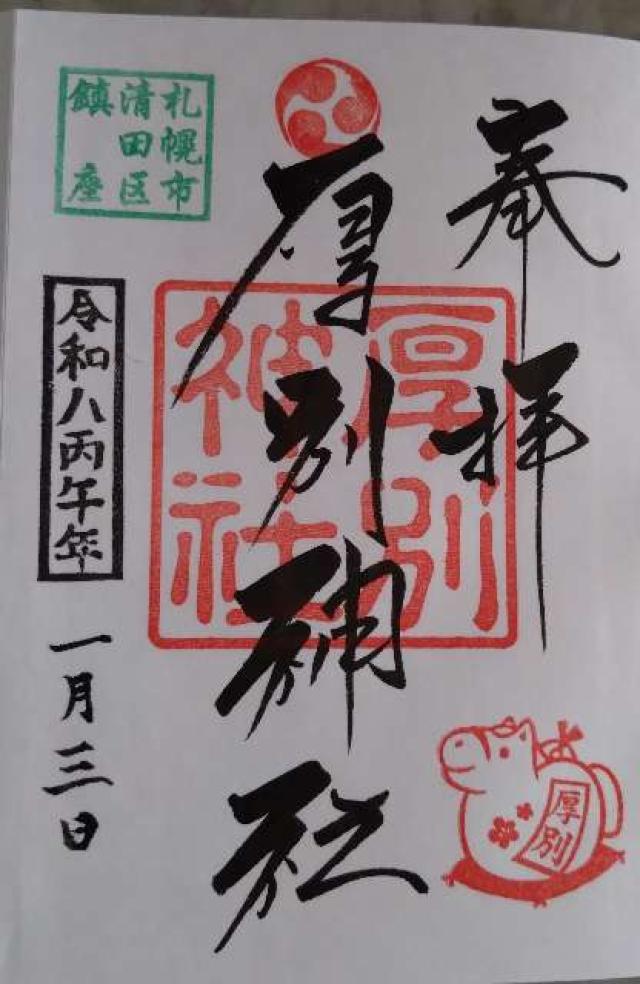 奉拝
厚別神社
厚別
神社
札幌市
清田区
鎮座
令和八丙午年
一月三日
厚別